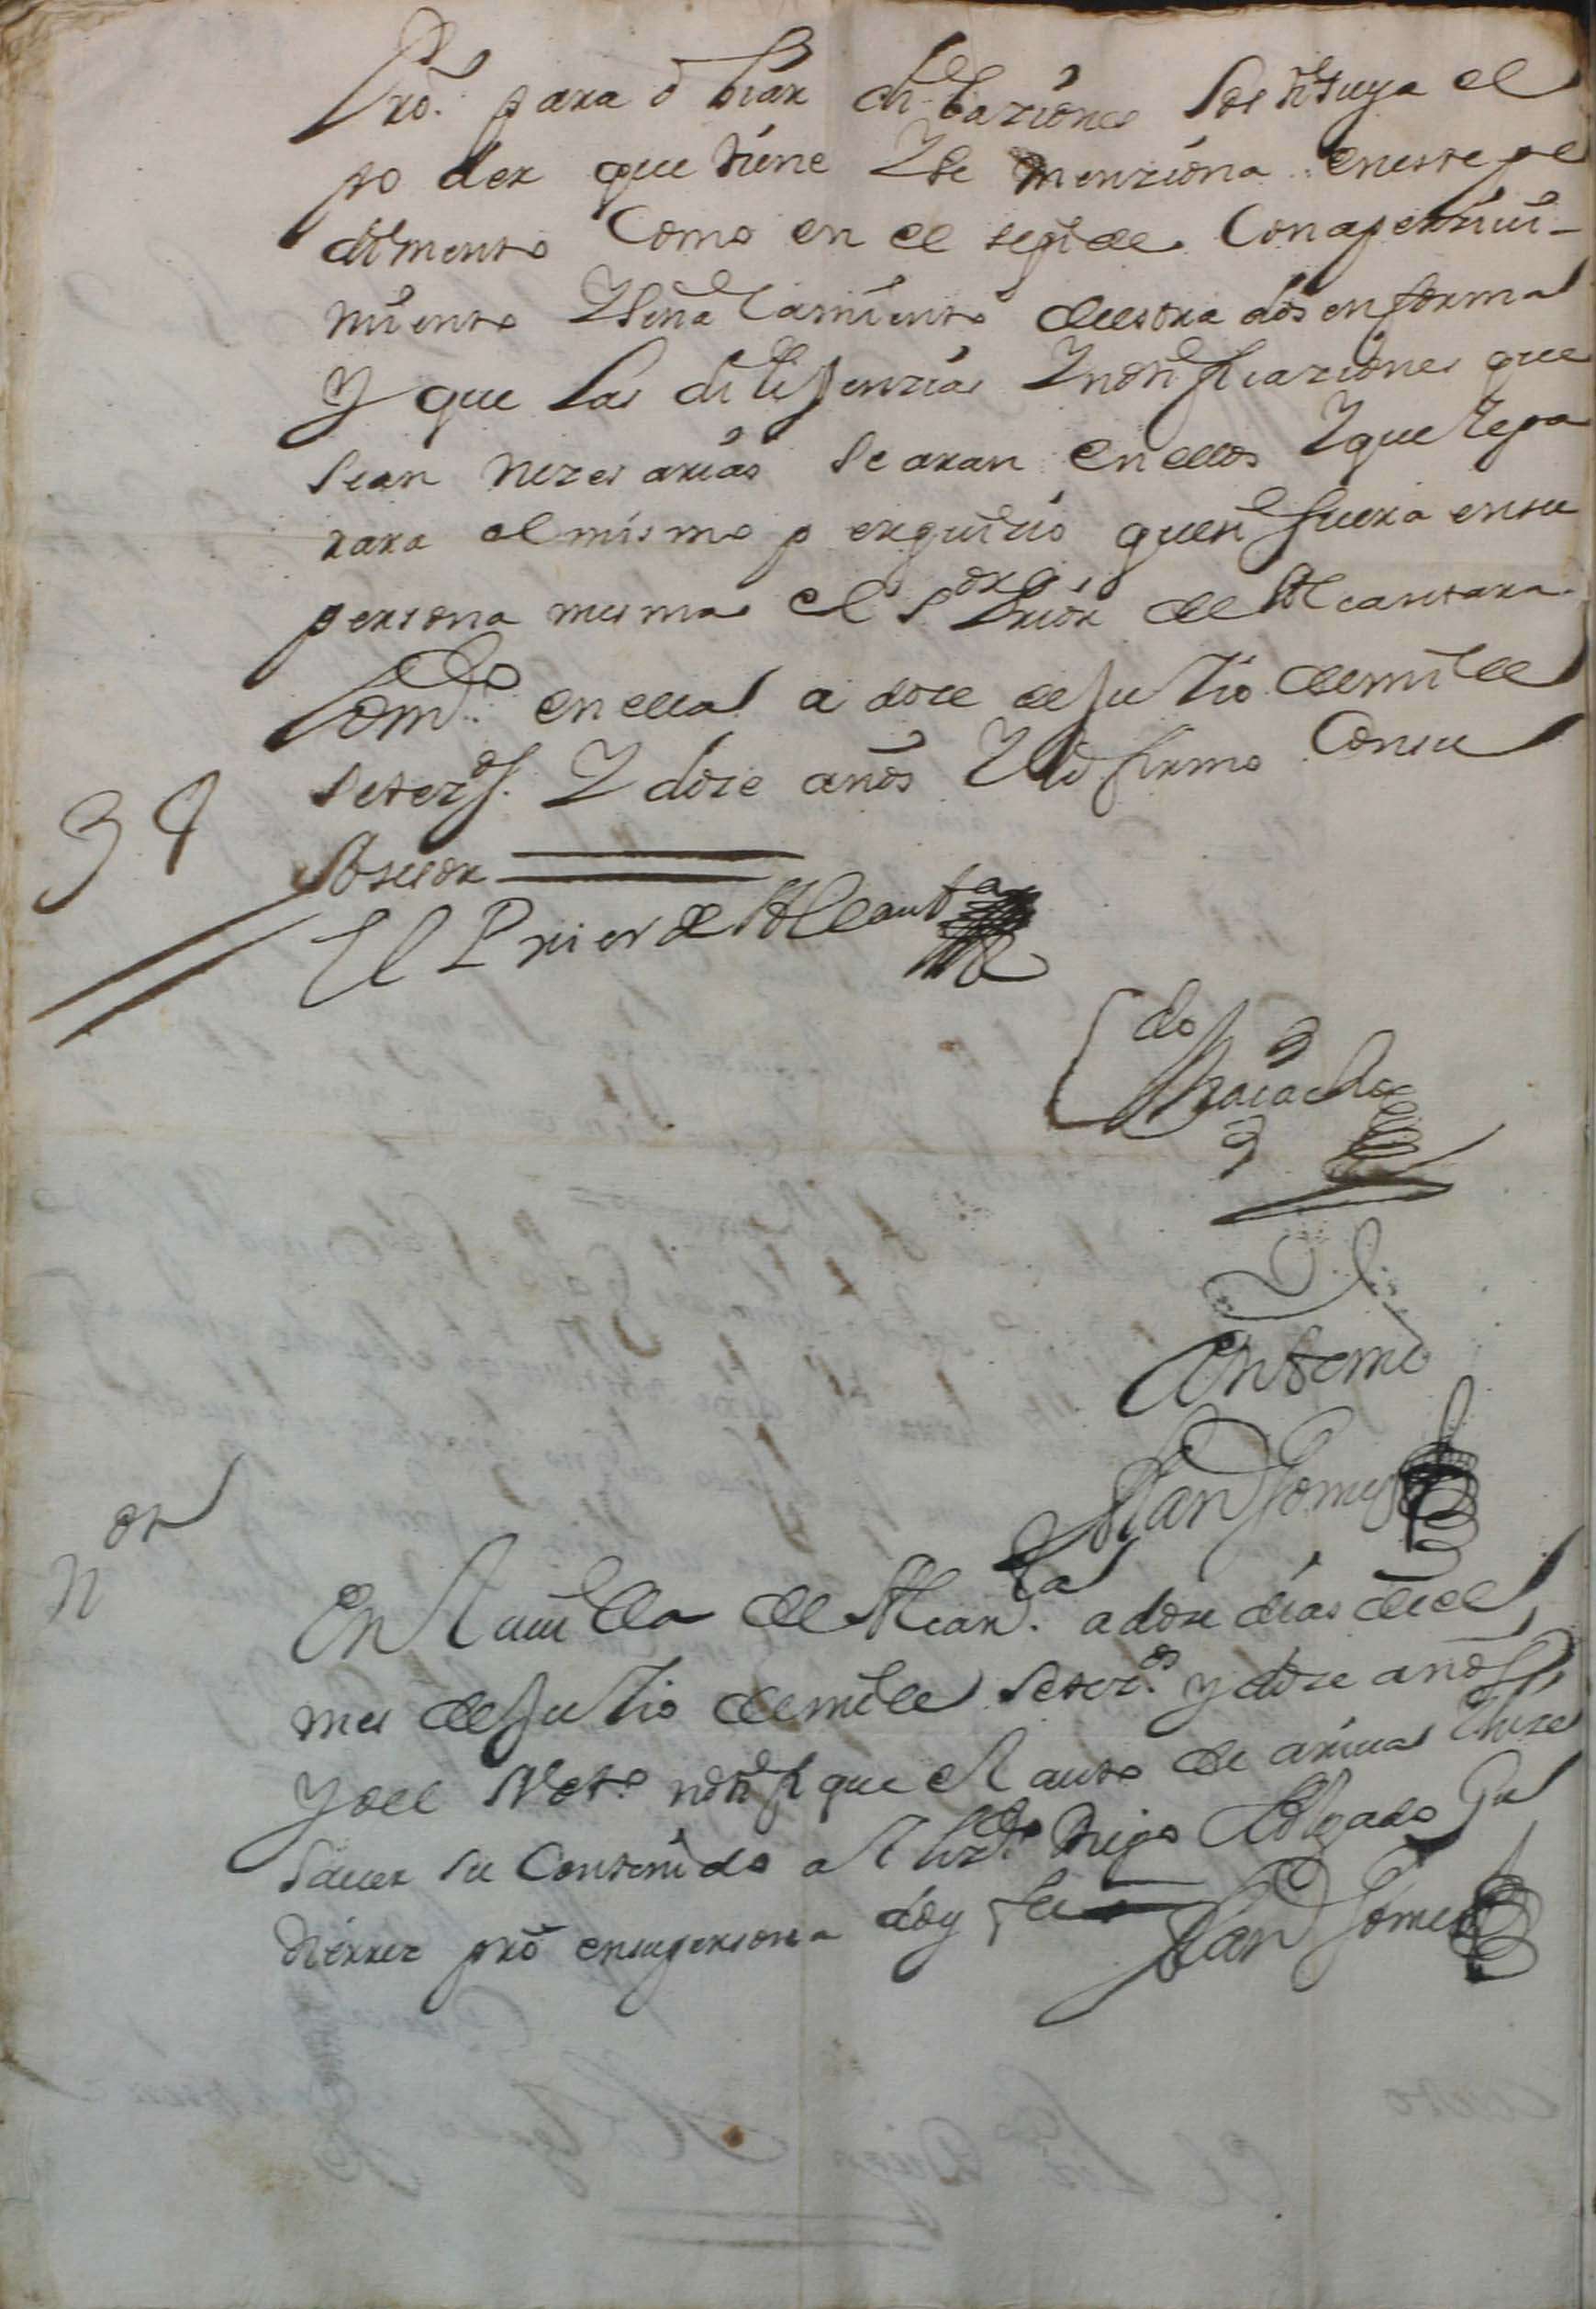 pro. para obiar dilaziones sostituya el
poder que tiene Y se menziona en este pe
dimento Como en el se pide Con aperziui-
miento Y señalamiento de estrados en forma
Y que las dilijenzias Y notificaziones que
sean nezesarias se aran en ellos Y que le pa
rara el mismo perquizio que si fuera en su
persona misma el Sor Prior de Alcantara
lo mdo. en ella a doze de Julio de mil
setezos. Y doze años Y lo firmo Con su
Asesor
34
El Prior de Alcanta
Ldo
Ante mi
Juan Gomez
non
En la uilla de Alcanta. a doze dias de el
mes de Julio de mil setezos. y doze años
Yo el Noto. notifique el auto de ariua e hize
sauer su Contenido a el lizdo. Diego Delgado
pro en su persona doy fee
Juan Gomez